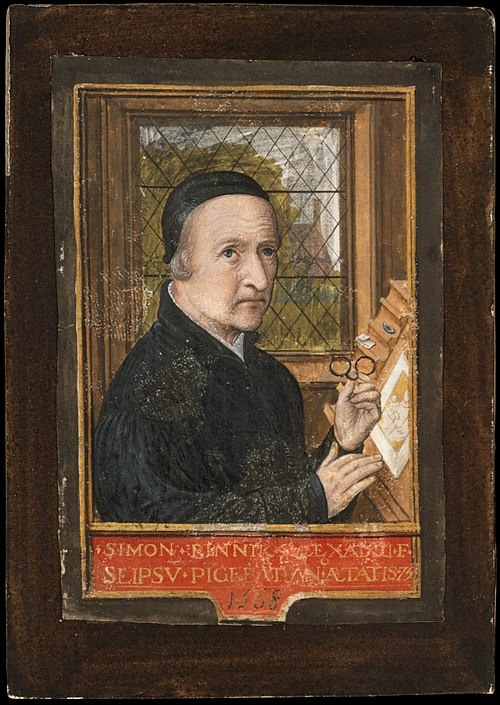 SIMON · BINNIK · ALEXADRI · F ·
SEIPSV · PIGEBAT · ANº ÆTATIS · 75
1558